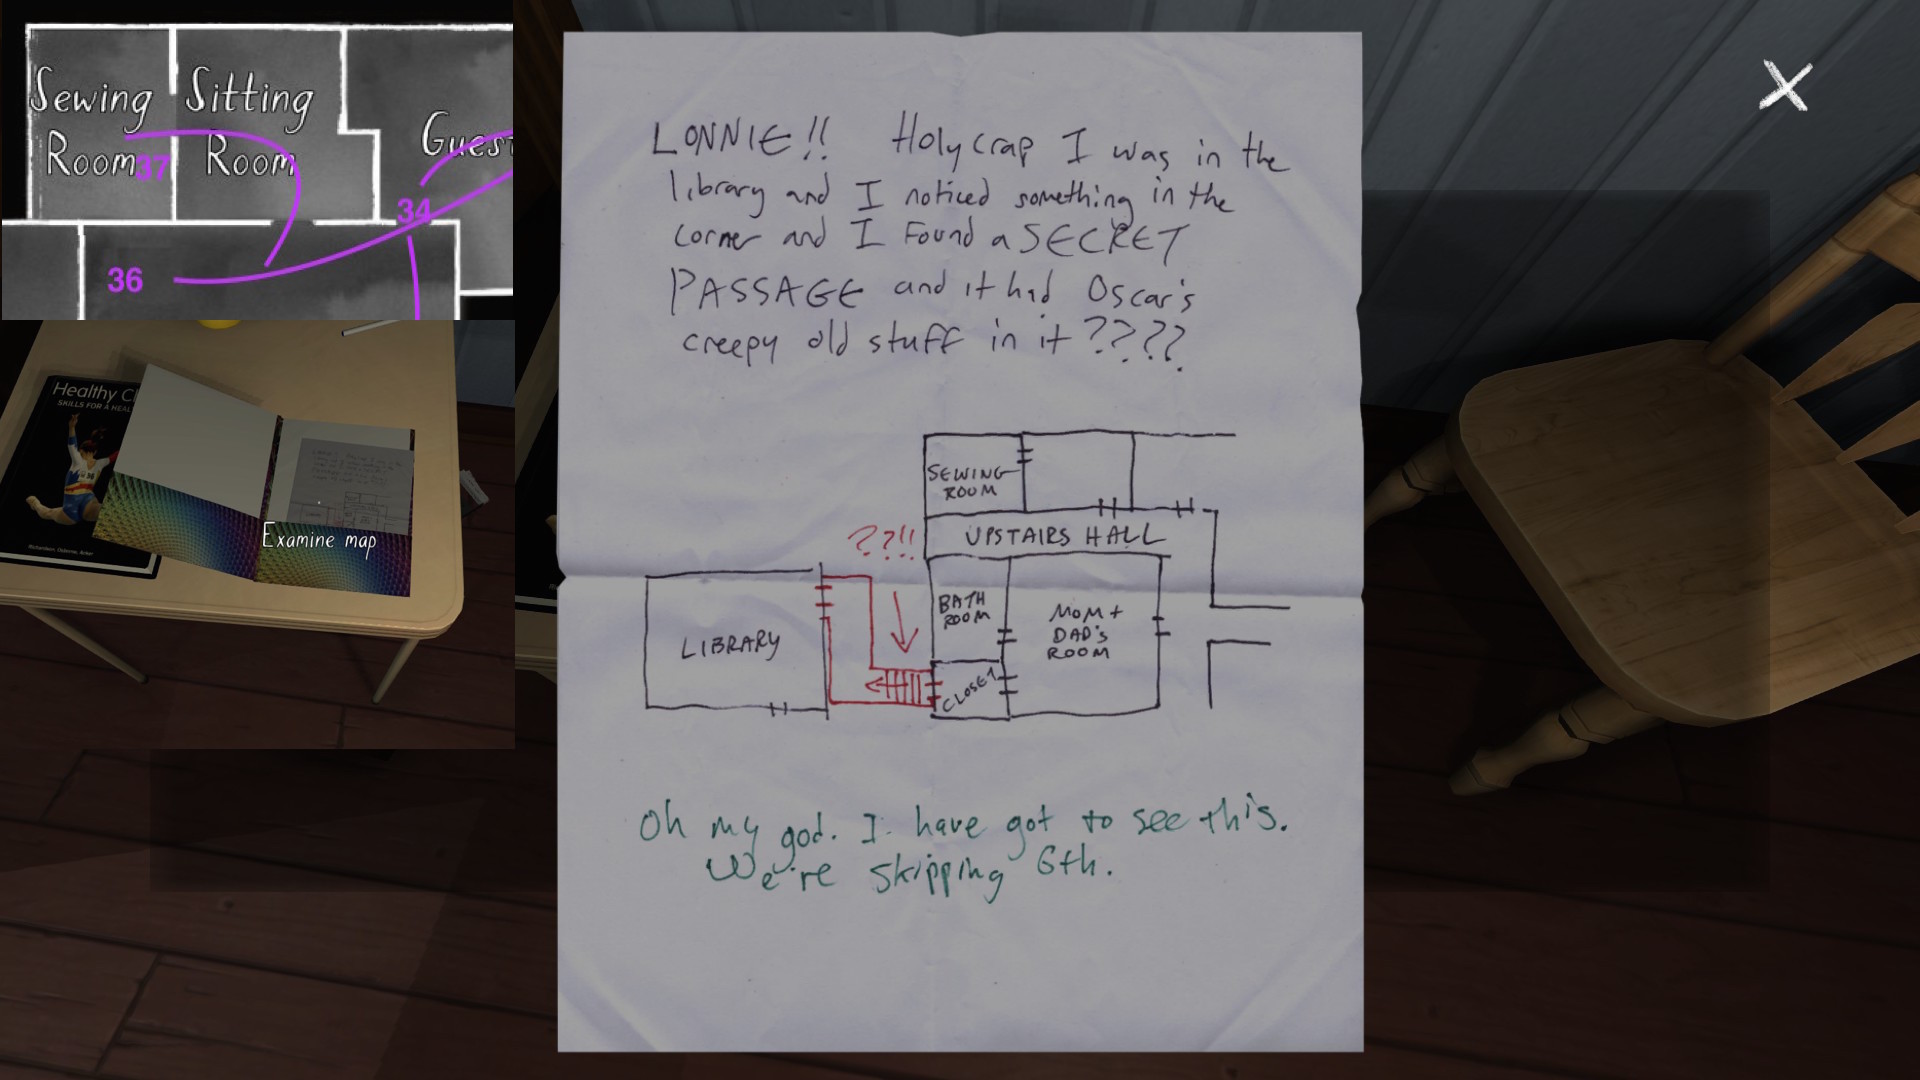 Sewing
Room
37
Sitting
Room
Guest
34
36
Healthy
SKILLS FOR A
Examine map
LONNIE!! Holy crap I was in the
library and I noticed something in the
corner and I Found a SECRET
PASSAGE and it had Oscar's
creepy old stuff in it ????
SEWING
ROOM
UPSTAIRS HALL
??!!
LIBRARY
BATH
ROOM
MOM +
DAD'S
ROOM
CLOSET
Oh my god. I have got to see this.
We're skipping 6th.